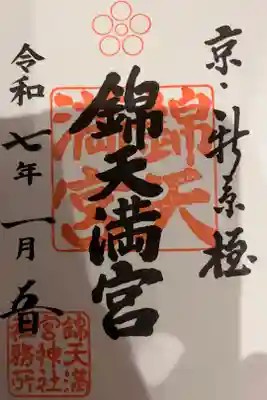 京・新京極
錦天満宮
錦天
満宮
令和七年一月
錦天満
宮神社
務所